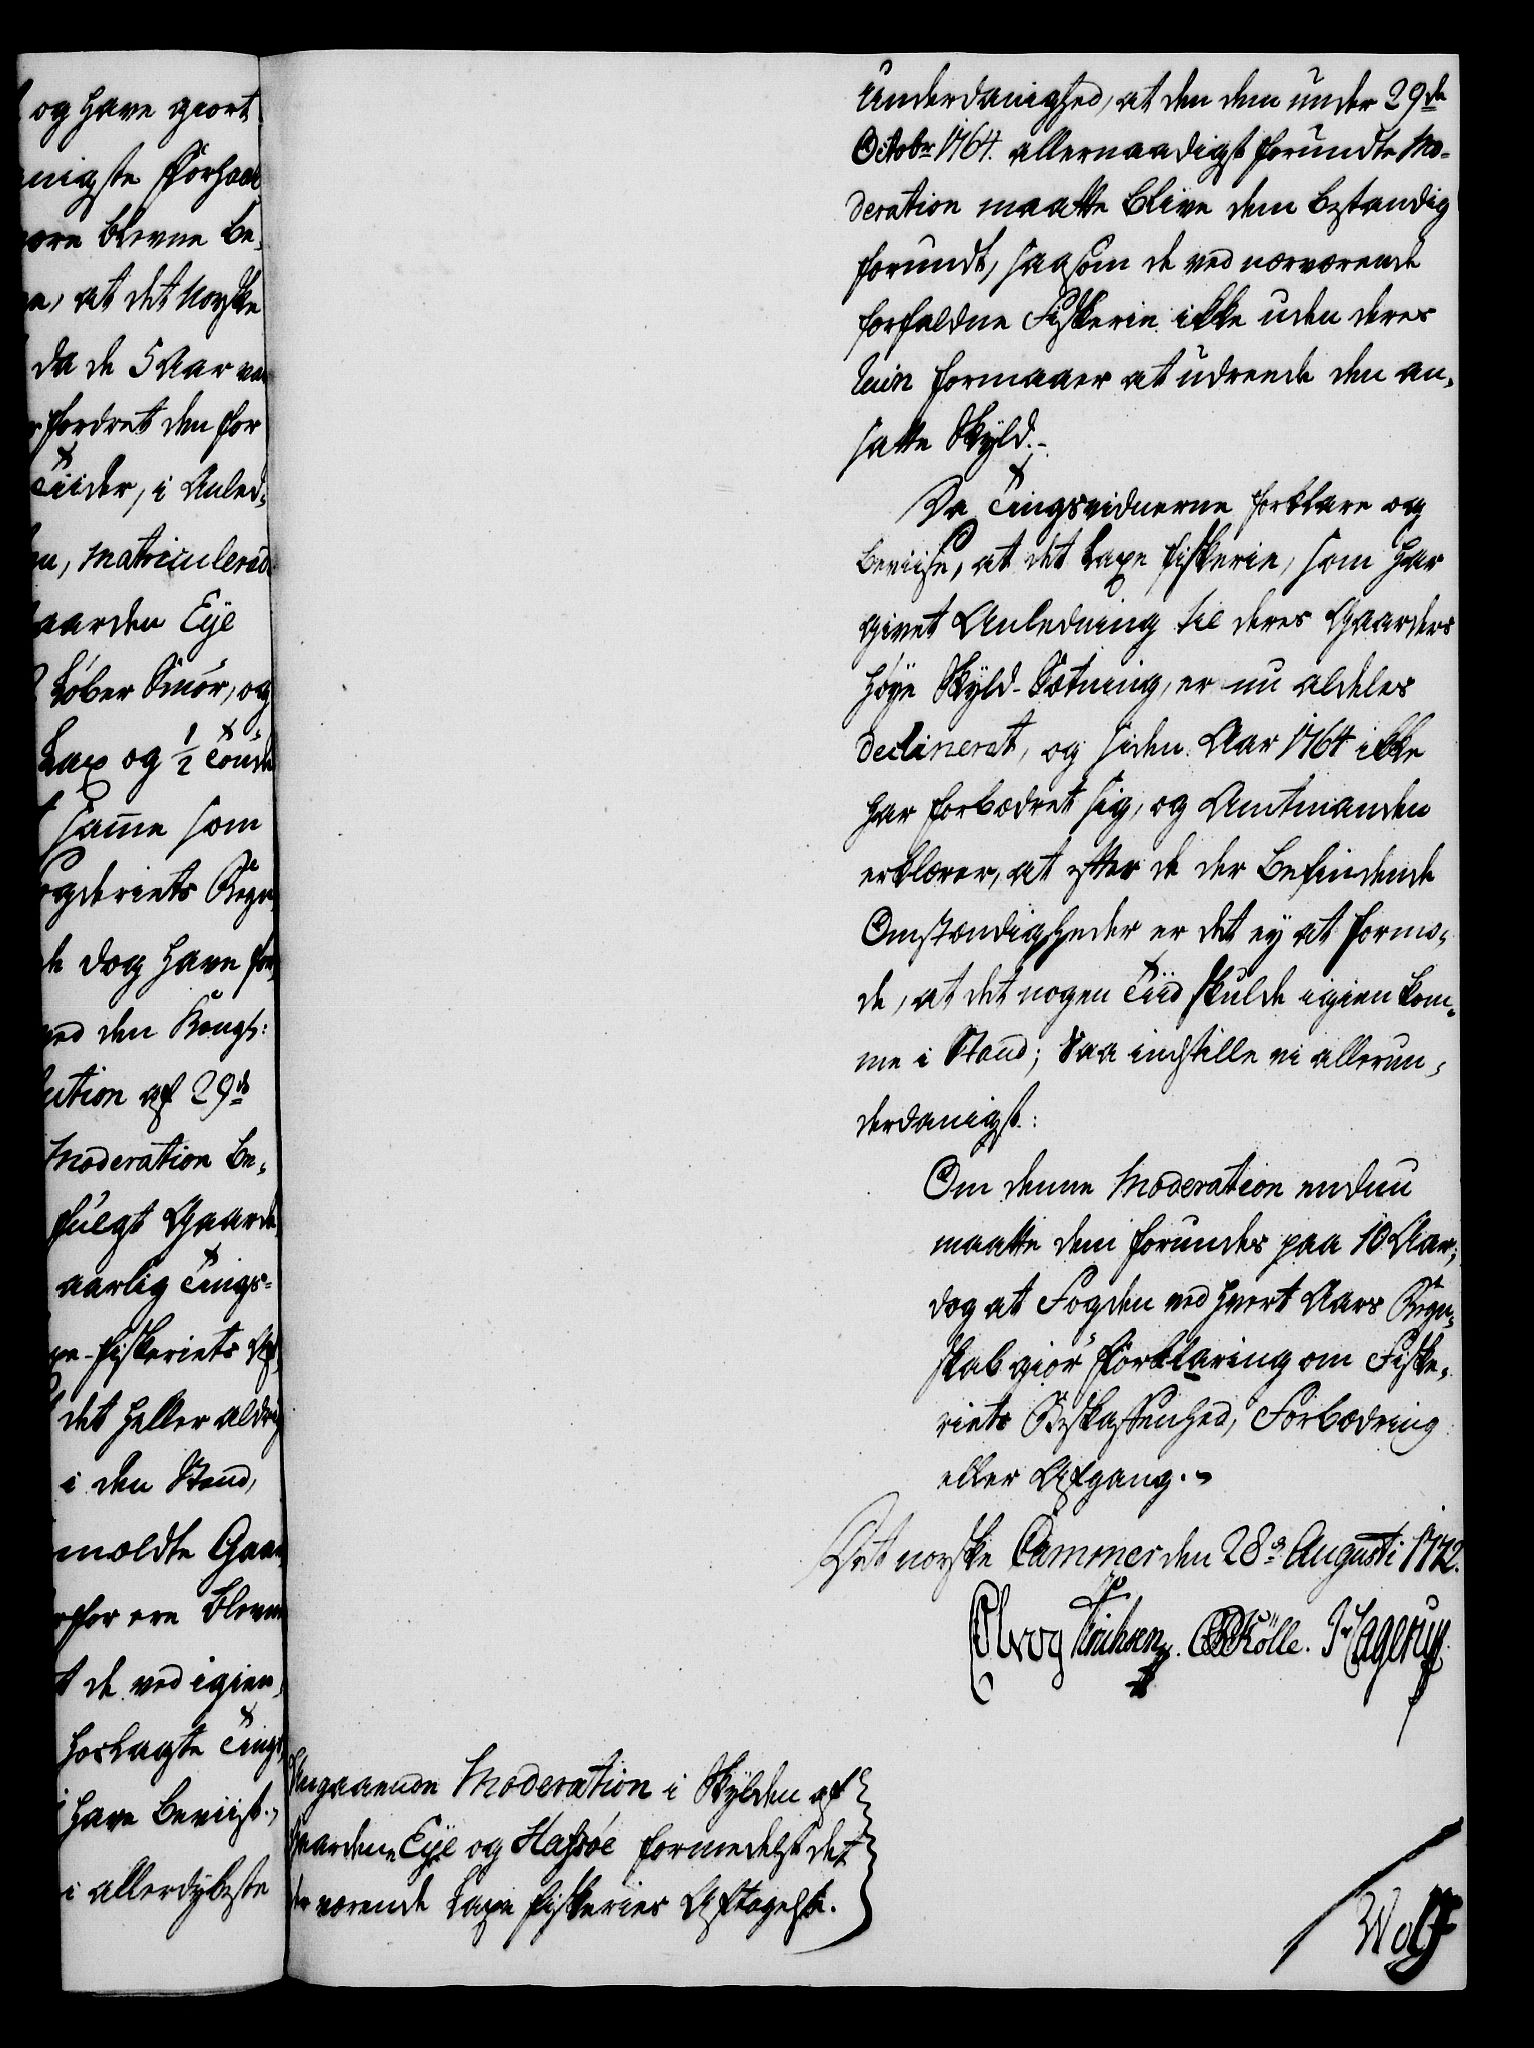 og have giort
nigste Forhaab
være blevne be-
at det Norske
da de 5 Aar va
fordret den for
Tiider, i Anled-
Matriculerede
aarden Eye
Løber Smør, og
Lax og 1/2 Tønde
samme som
ogderiets Regn
dog have for
ved den Kongl:
lution af 29de
Moderation be-
fulgt Gaarde
aarlig Tings-
fiskeriets Af
det heller aldrig
i den Stand,
mældte Gaar
for ere bleven
de ved igien-
hoslagte Tings
have beviist.
i allerdybeste
Underdanighed, at den dem under 29de
Octobr 1764. allernaadigst forundte Mo-
deration maatte blive dem bestandig
forundt, saasom de ved nærværende
forfaldne Fiskerie ikke uden deres
Ruin formaaer at udreede den an-
satte Skyld.
Da Tingsvidnerne forklare og
beviise, at det Laxe fiskerie, som har
givet Anledning til deres Gaarders
høye Skyld-Sætning, er nu aldeles
declineret, og siden Aar 1764 ikke
har forbædret sig, og Amtmanden
erklærer, at efter de der befindende
Omstændigheder er det ey at formo-
de, at det nogen Tiid skulde igien kom-
me i Stand; Saa indstille vi allerun-
derdanigst:
Om denne Moderation endnu
maatte dem forundes paa 10 Aar,
dog at Fogden ved hvert Aars Regn-
skab giør Forklaring om Fiske-
riets Beskaffenhed, Forbædring
eller Afgang.
Det norske Cammer den 28de Augusti 1772.
Erichsen. Kölle. Hagerup
Angaaende Moderation i Skylden af
Gaardene Eye og Hafsøe formedelst det
der værende Laxe fiskeries Aftagelse.
Wolf